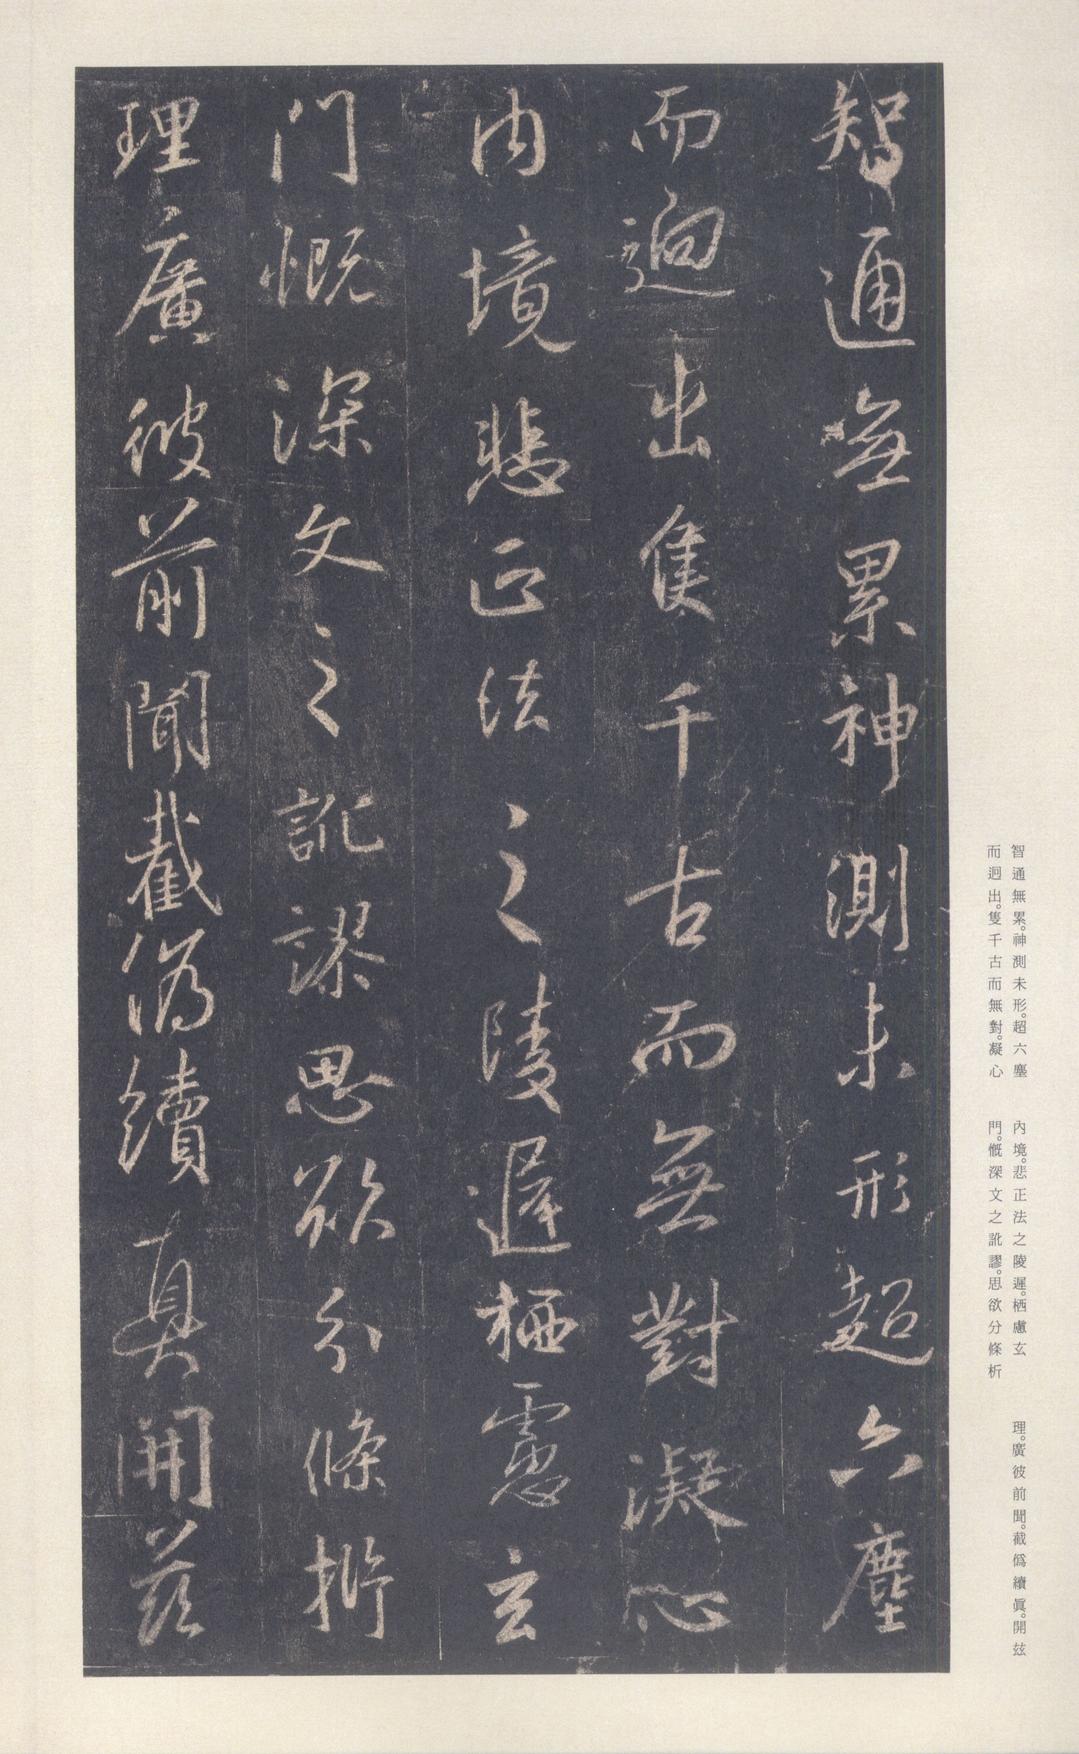 智通無累神測未形超六塵
而迥出隻千古而無對凝心
內境悲正法之陵遲栖慮玄
門慨深文之訛謬思欲分條析
理廣彼前聞截偽續真開茲
智通無累。神測未形。超六塵
而迥出。隻千古而無對。凝心
內境。悲正法之陵遲。栖慮玄
門。慨深文之訛謬。思欲分條析
理。廣彼前聞。截僞續眞。開玆